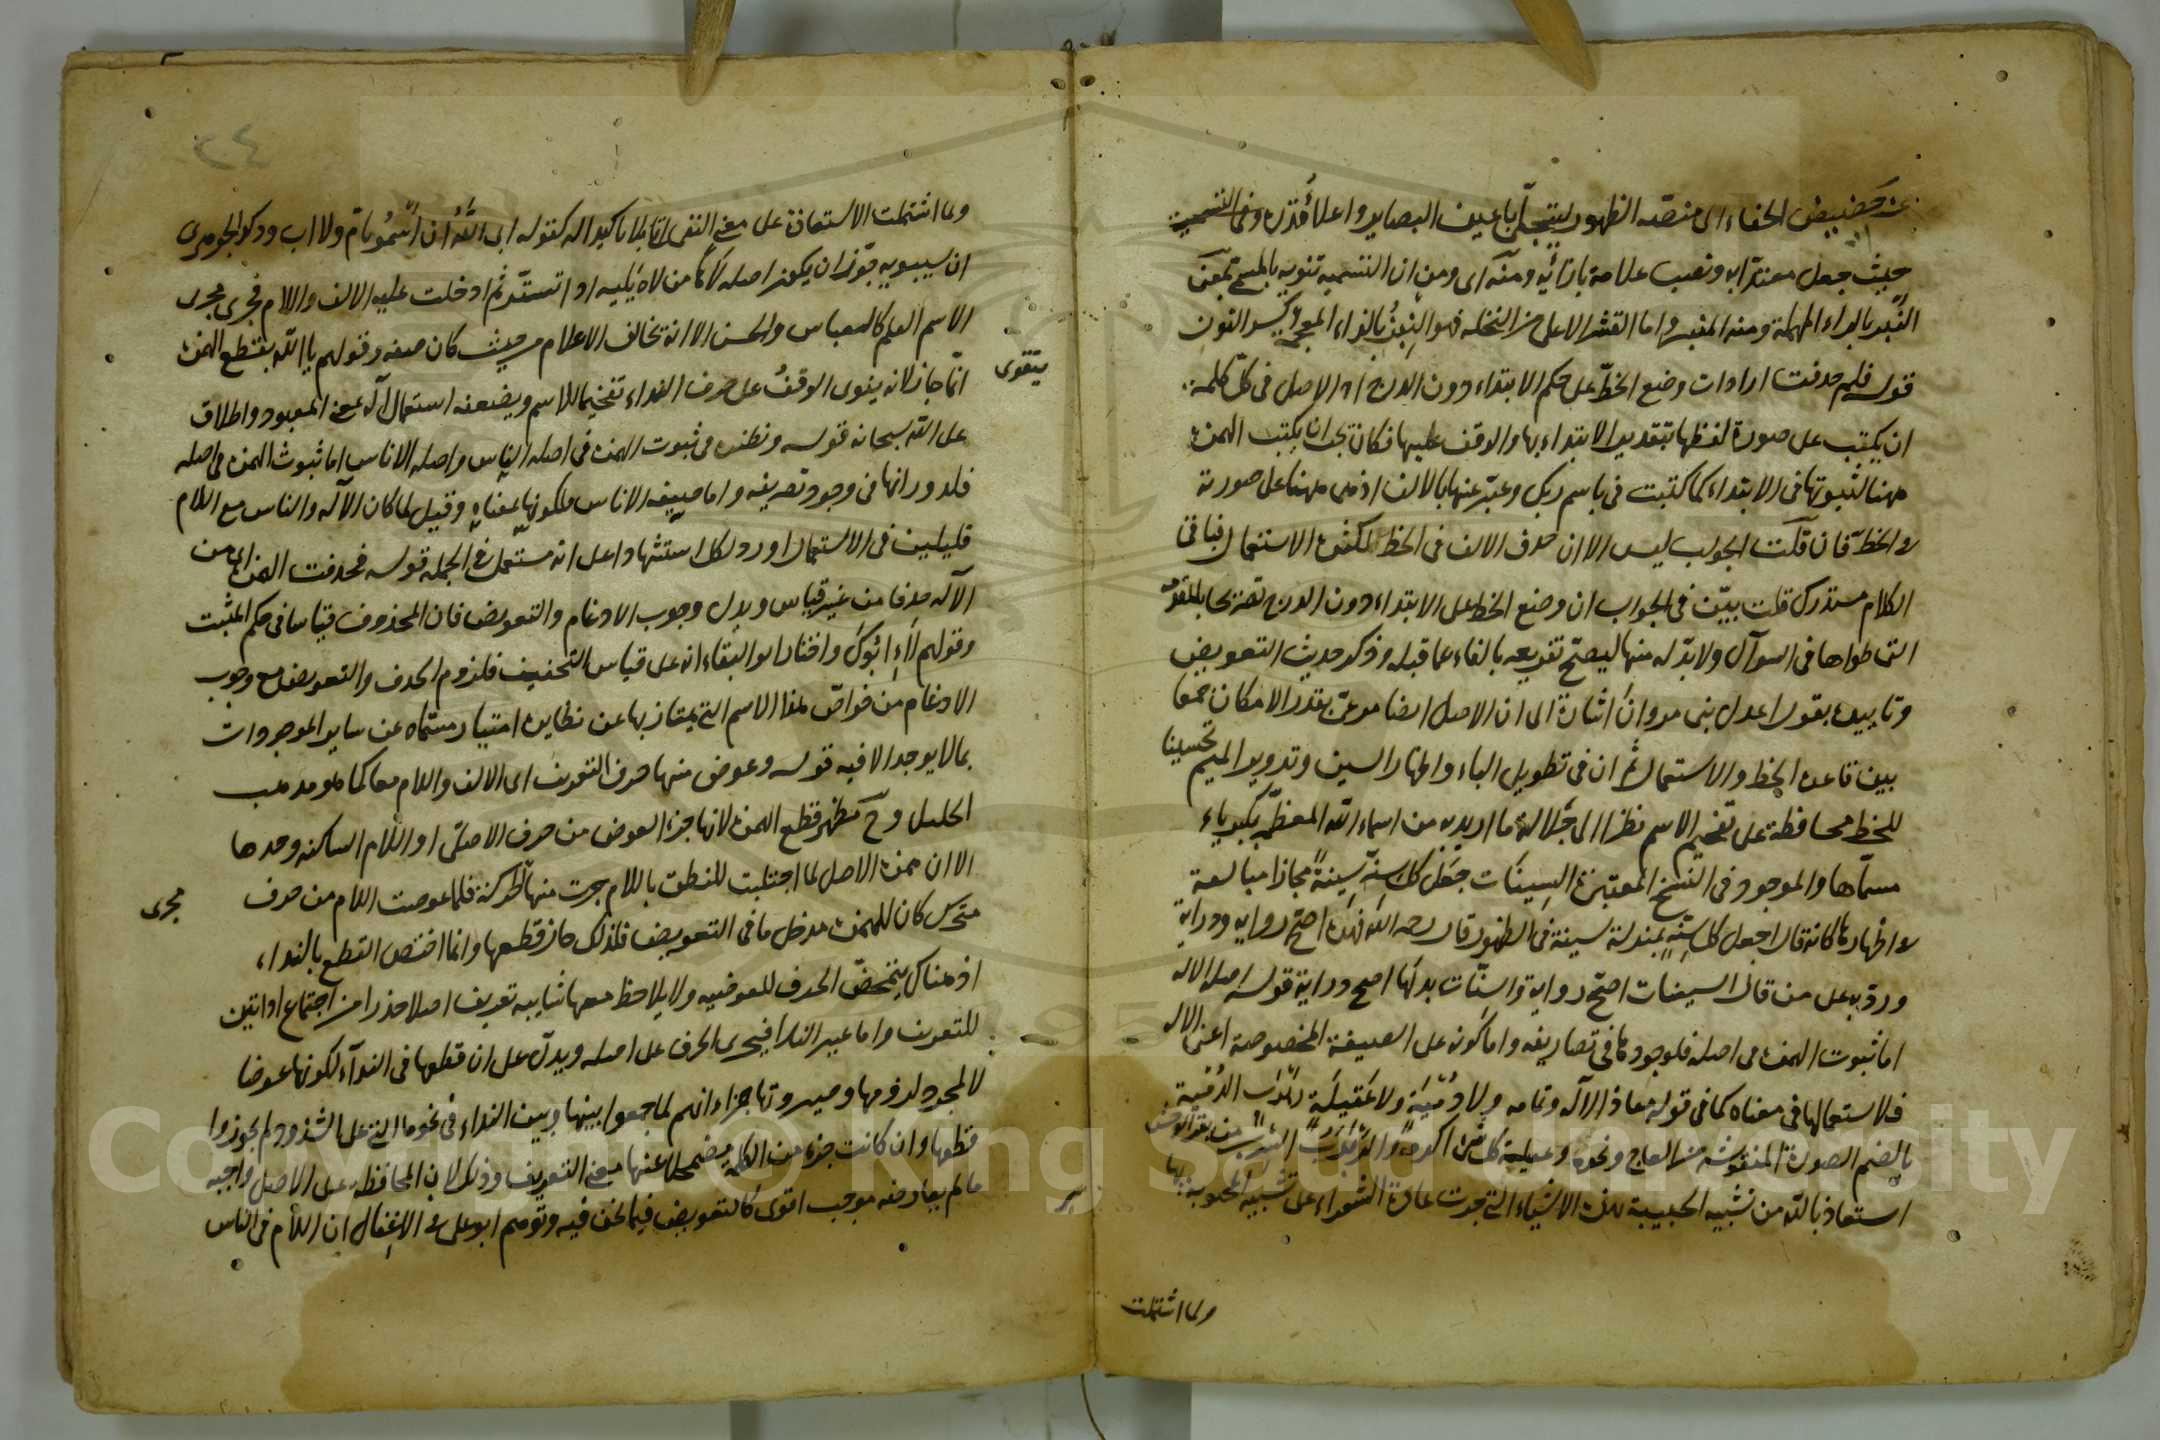 عن حضيض الخفاء الى منصة الظهور ليتجلى باعين البصاير واعلا قدره وفى التسمية
حيث جعل معتدا به ونصب علامة بازائه ومنه اى ومن ان التسمية تنويه بالمسمى
النبر بالراء المهملة ومنه المنبر واما القشر الاعلى من النخلة فهو النبز بالزاء المعجمة وكسر النون
قوله فلم حذفت ارادات وضع الخط على حكم الابتداء دون الدرج اذ الاصل فى كل كلمة
ان يكتب على صورة لفظها بتقدير الابتداء بها والوقف عليها فكان يجب ان يكتب الهمزة
ههنا لثبوتها فى الابتداء كما كتبت فى باسم ربك وعبر عنها بالالف اذ هى ههنا على صورته
فى الخط فان قلت الجواب ليس الا ان حذف الالف فى الخط لكثرة الاستعمال فباقى
الكلام مستدرك قلت بين فى الجواب ان وضع الخط على الابتداء دون الدرج تصريحا بالمقدمة
التى طواها فى السوآل ولا بد له منها ليصح تفريعه بالفاء عما قبله وذكر حديث التعويض
وتاييده بقول اعدل بنى مروان اشارة الى ان الاصل ايضا مرعى بقدر الامكان جمعا
بين قاعدة الخط والاستعمال ثم ان فى تطويل الباء واظهار السين وتدوير الميم تحسينا
للخط محافظة على تفخيم الاسم نظرا الى جلالة ما اريد به من اسماء الله المعظمة بكبرياء
مسماها والموجود فى النسخ المعتبرة السينات جعل كل سنة سينة مجازا مبالغة
فى اظهارها كانه قال اجعل كل سنة بمنزلة سينة فى الظهور قال رحمه الله فهذه اصح رواية ودراية
ورد به على من قال السينات اصح رواية والسنات بدلها اصح دراية قوله اصله الاله
اما ثبوت الهمزة فى اصله فلوجودها فى تصاريفه واما كونه على الصيغة المخصوصة اعنى الاله
فلاستعمالها فى معناه كما فى قوله معاذ الآله وتمامه ولا دمية ولا عقيلة ربرب الدمية
بالضم الصورة المنقوشة من العاج ونحوه وعقيلة كل شىء اكرمه والربرب السرب من بقر الوحش
استعاذ بالله من تشبيه الحبيبة بهذه الاشياء التى جرت عادة الشعراء على تشبيه المحبوبة بها
ولما اشتملت
٣٤
ولما اشتملت الاستعاذة على معنى النفى اتى بلا تاكيدا له كقوله ابى الله ان اسمو بام ولا اب وذكر الجوهرى
ان سيبويه جوز ان يكون اصله لاها من لاه يليه اذا تستر ثم ادخلت عليه الالف واللام فجرى مجرى
الاسم العلم كالعباس والحسن الا انه تخالف الاعلام من حيث كان صفة وقولهم يا الله بقطع الهمزة
انما جاز لانه ينوى الوقف على حرف النداء تفخيما للاسم ويضعفه استعمال آله بمعنى المعبود واطلاق
يتقوى
على الله سبحانه قوله ونظيره فى ثبوت الهمزة فى اصله الناس واصله الاناس اما ثبوت الهمزة فى اصله
فلدورانها فى وجوه تصريفه واما صيغة الاناس فلكونها بمعناه وقيل لما كان الآله والناس مع اللام
قليلين فى الاستعمال اورد لكل استشهادا على انه مستعمل فى الجملة قوله فحذفت الهمزة اى من
الآله حذفا من غير قياس وبدل وجوب الادغام والتعويض فان المحذوف قياسا فى حكم المثبت
وقولهم لاه ابوك واختار ابو البقاء انه على قياس التخفيف فلزوم الحذف والتعويض مع وجوب
الادغام من خواص هذا الاسم التى يمتاز بها عن نظايره امتياز مسماه عن ساير الموجودات
بما لا يوجد الا فيه قوله وعوض منها حرف التعريف اى الالف واللام معا كما هو مذهب
الخليل وح يظهر قطع الهمزة لانها جزء العوض من حرف الاصلى او اللام الساكنة وحدها
الا ان همزة الاصل لما اجتلبت للنطق باللام جرت منها الحركة فلما عوضت اللام من حرف
مجرى
متحرك كان للهمزة مدخل ما فى التعويض فلذلك جاز قطعها وانما اختص القطع بالنداء
اذ هناك يتمحض الحرف للعوضيه ولا يلاحظ معها شايبة تعريف اصلا حذرا من اجتماع اداتين
للتعريف واما غير النداء فيجرى الحرف على اصله ويدل على ان قطعها فى النداء لكونها عوضا
لا لمجرد لزومها وصيرورتها جزاء انهم لما جمعوا بينها وبين النداء فى نحو ما التى على الشذوذ لم يجوزوا
قطعها وان كانت جزء من الكلمة مضمحلا عنها معنى التعريف وذلك لان المحافظة على الاصل واجبة
ما لم يعارضه موجب اقوى كالتعويض فيما نحن فيه وتوهم ابو على فى الاغفال ان اللام فى الناس